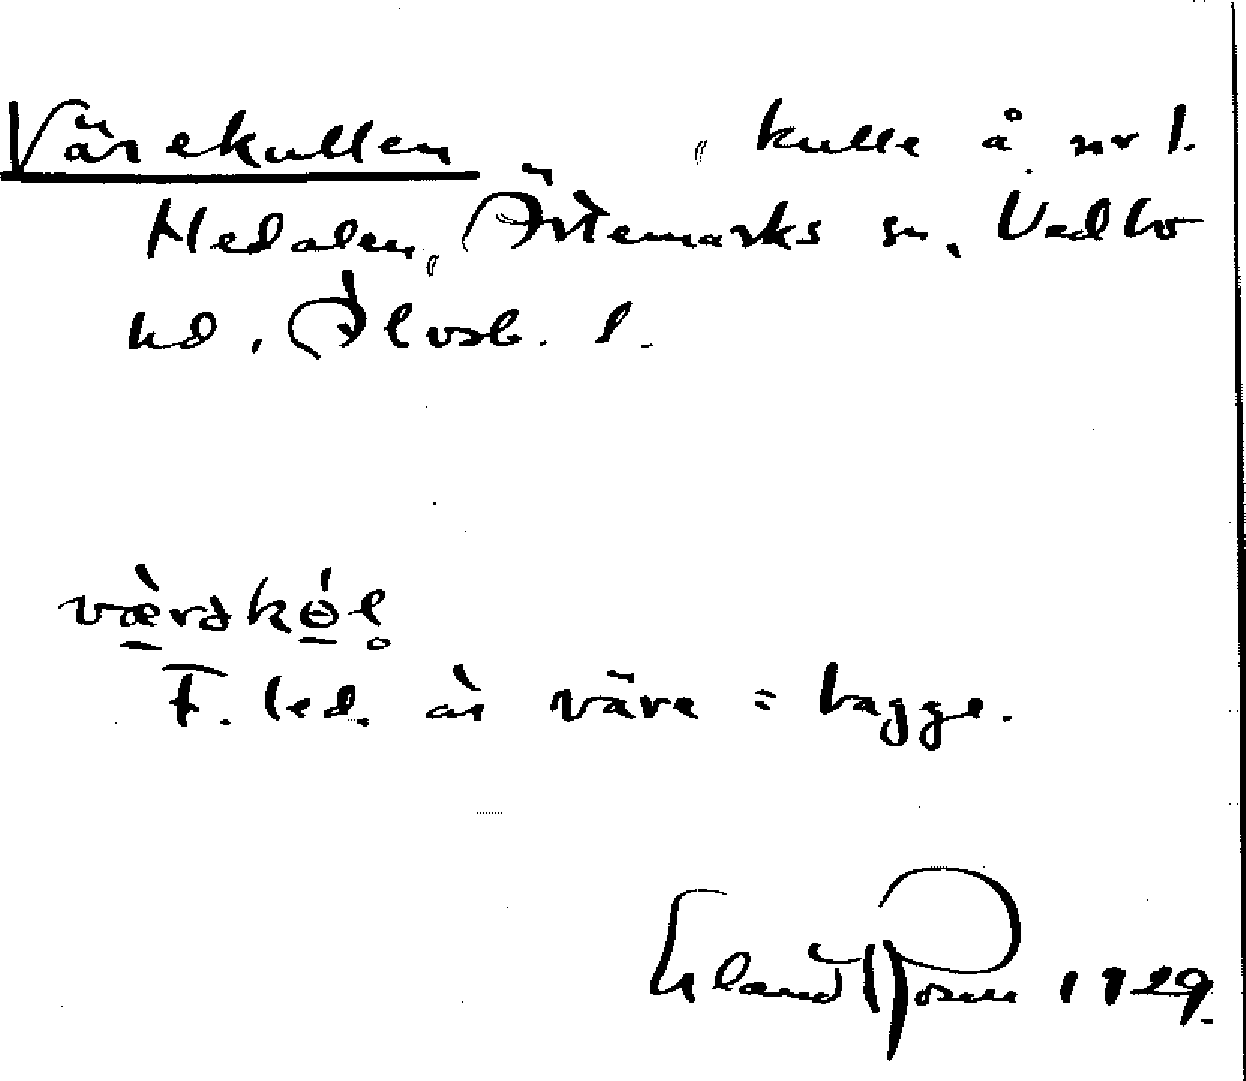 Värekullen, kulle å nr 1.
Medalen, Ärtemarks sn, Vedbo
hd, Älvsb. l.
værəkɵ́l̥
F. led. är väre = bagge.
Erland Rosell 1929.